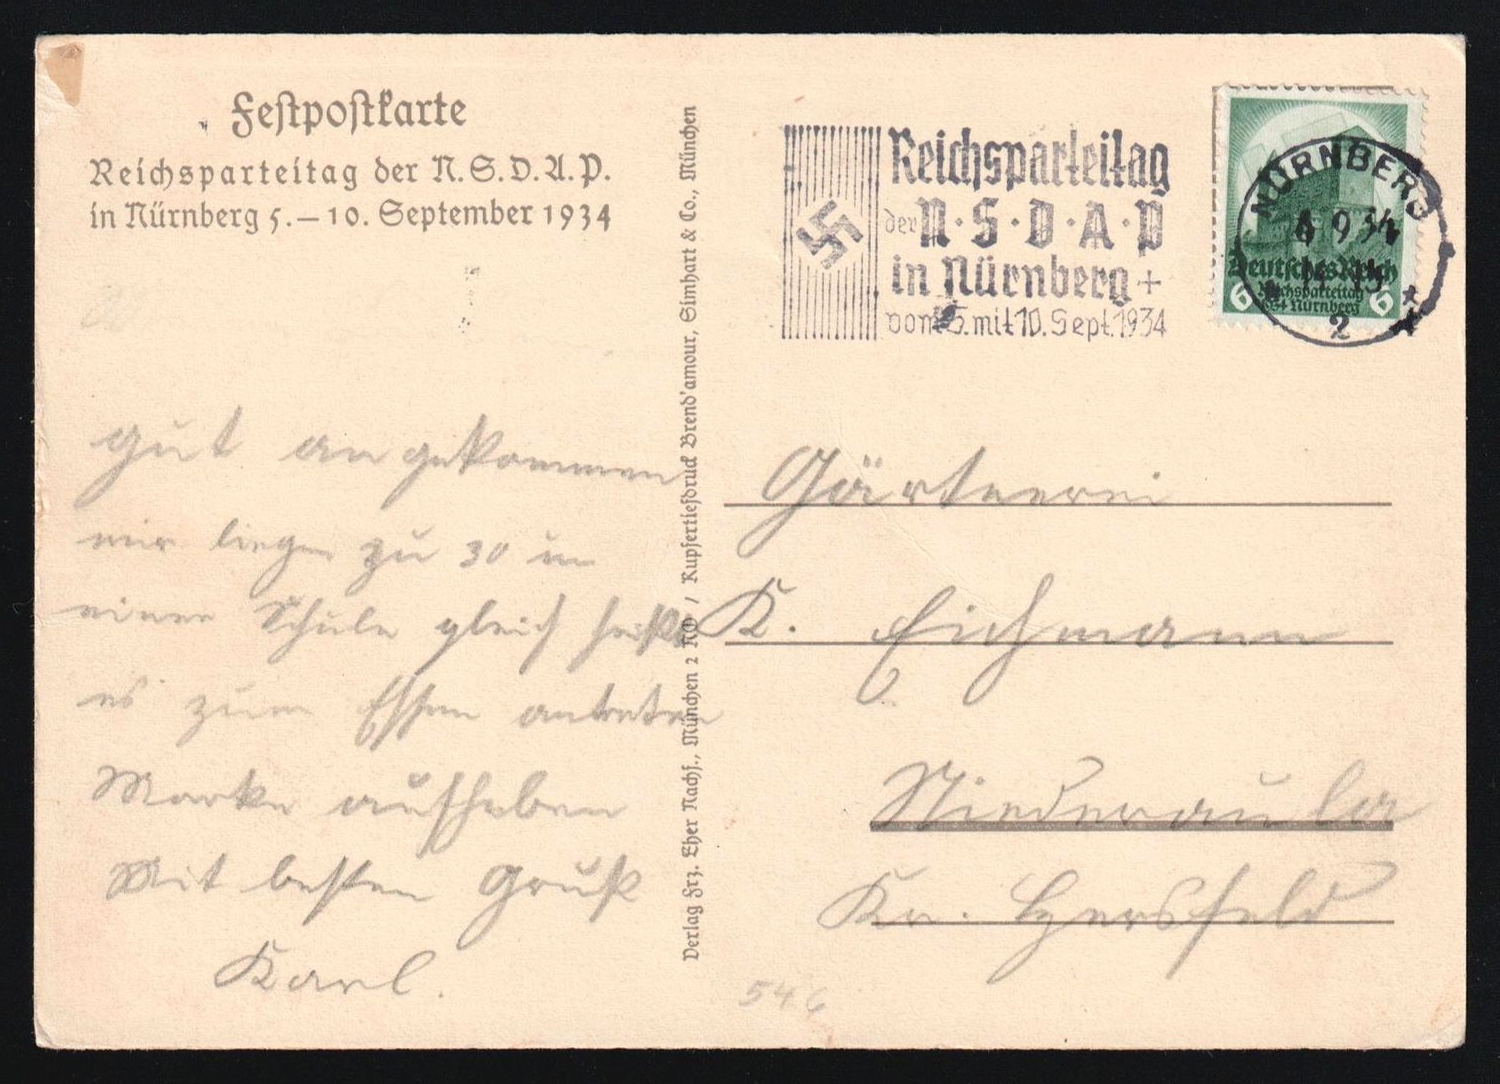 Festpostkarte
Reichsparteitag der N.S.D.A.P.
in Nürnberg 5.–10. September 1934
gut angekommen
wir liegen zu 30 in
einer Schule gleich heißt
es zum Essen antreten
Marke aufheben
Mit besten Gruß
Karl.
Verlag Frz. Eher Nachf., München 2 NO / Kupfertiefdruck Brend'amour, Simhart & Co., München
Reichsparteitag
der N·S·D·A·P
in Nürnberg +
vom 5. mit 10. Sept. 1934
NÜRNBERG
9 34
2
Deutsches Reich
Reichsparteitag
1934 Nürnberg
6 6
Gärtnerei
K. Eichmann
Niederaula
Kr. Hersfeld
546